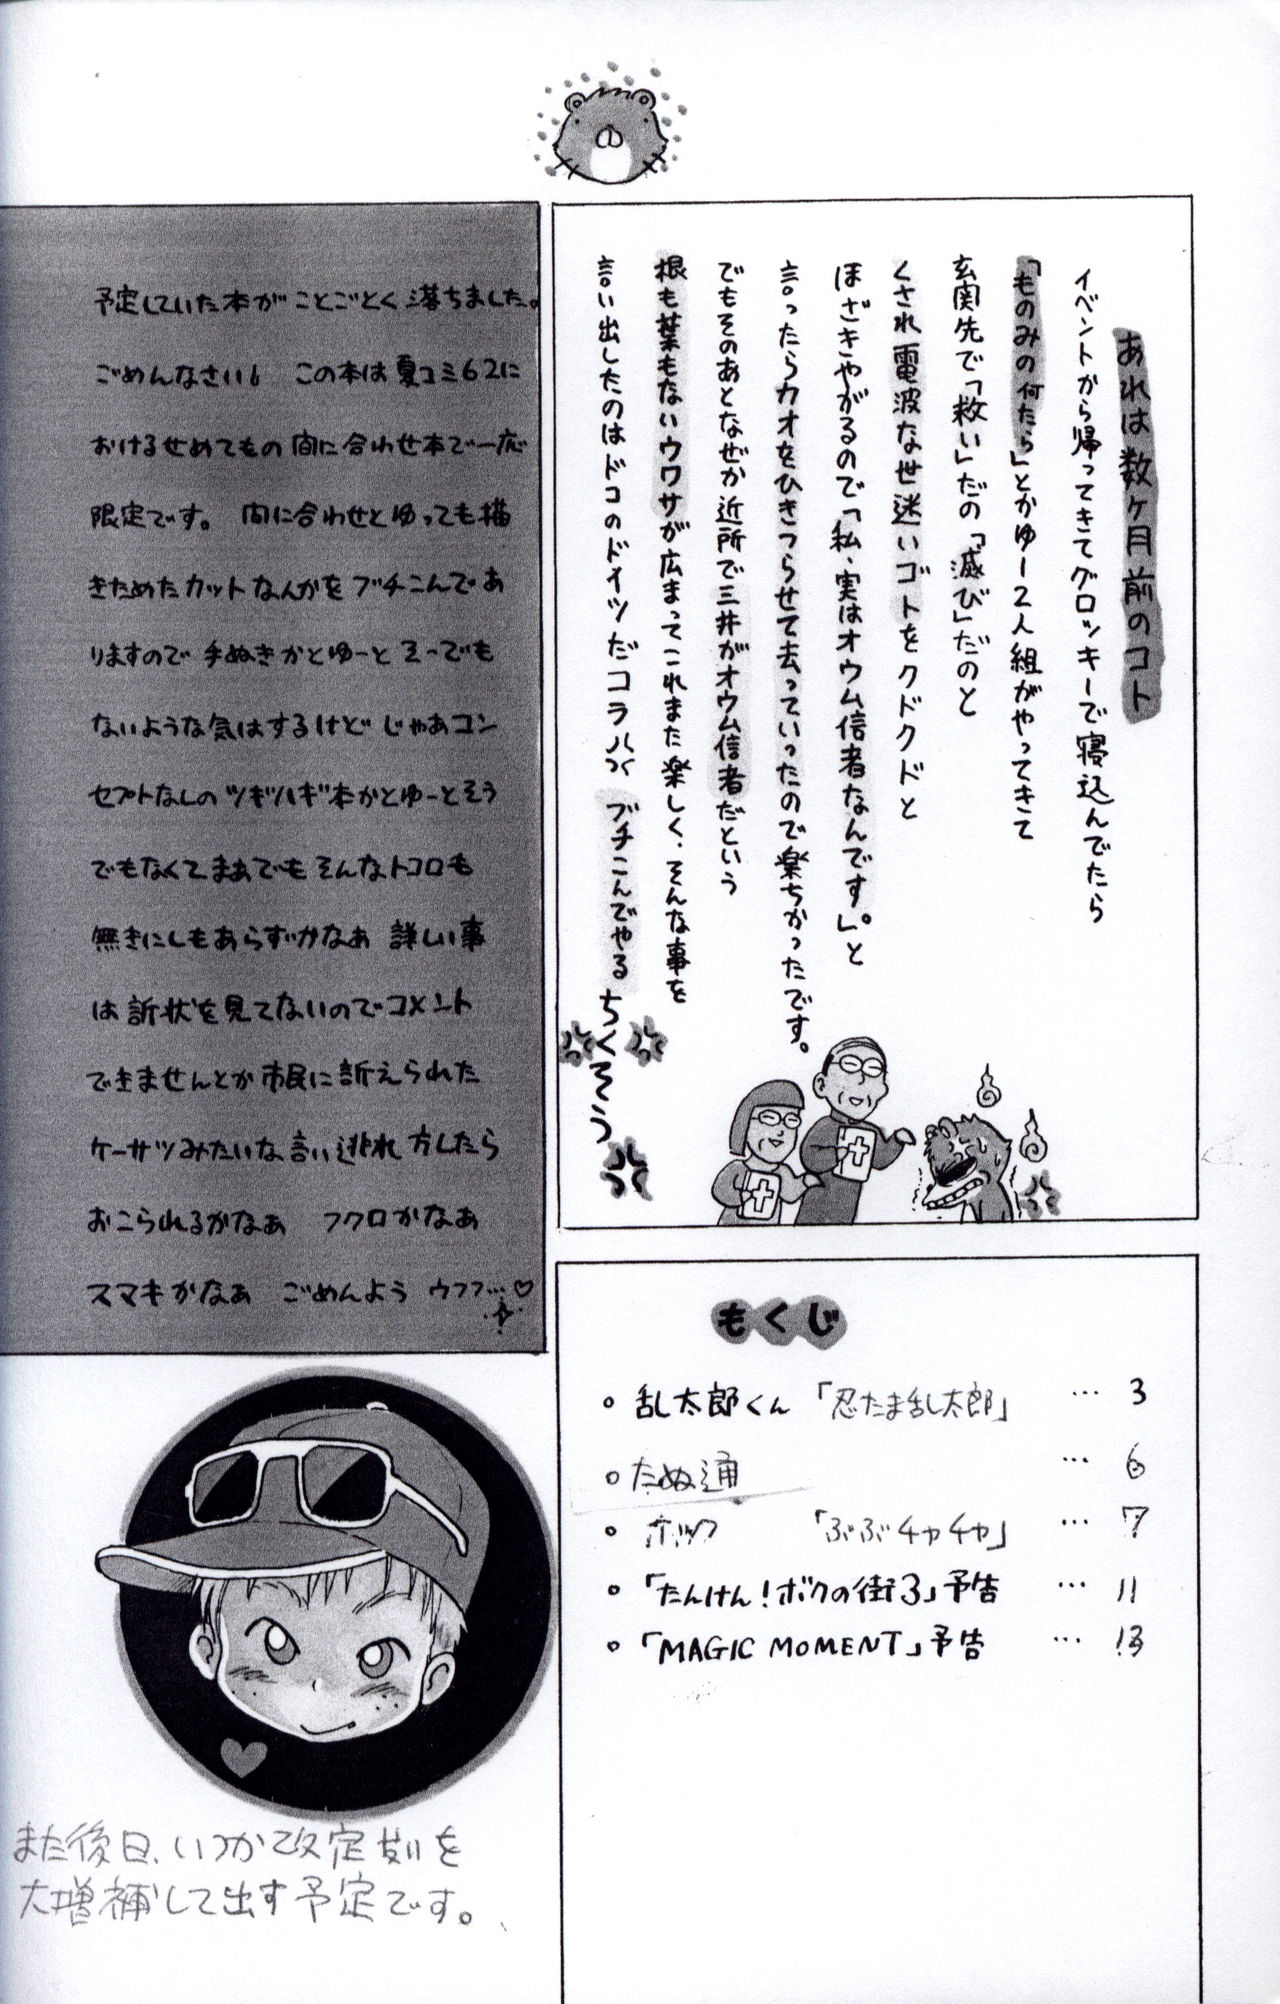 あれは数ヶ月前のコト
イベントから帰ってきてグロッキーで寝込んでたら
「ものみの何たら」とかゆー2人組がやってきて
玄関先で「救い」だの「滅び」だのと
くされ電波な世迷いゴトをクドクドと
ほざきやがるので「私、実はオウム信者なんです。」と
言ったらカオをひきつらせて去っていったので楽ちかったです。
でもそのあとなぜか近所で三井がオウム信者だという
根も葉もないウワサが広まってこれまた楽しく、そんな事を
言い出したのはドコのドイツだコラ ブチこんでやる
ちくそう
予定していた本が ことごとく 落ちました。
ごめんなさい この本は 夏コミ62に
おけるせめてもの 間に合わせ本で一応
限定です。 間に合わせとゆっても描
きためたカットなんかを ブチこんであ
りますので 手ぬきかとゆーと そーでも
ないような気はするけど じゃあコン
セプトなしの ツギハギ本かとゆーとそう
でもなくて まぁでも そんなトコロも
無きにしもあらずかなぁ 詳しい事
は 訴状を見てないのでコメント
できませんとか 市民に訴えられた
ケーサツみたいな 言い逃れ方したら
おこられるかなぁ フクロかなぁ
スマキかなぁ ごめんよう ウフフ…♡
もくじ
○ 乱太郎くん 「忍たま乱太郎」 … 3
○ たぬ通 … 6
○ ホック 「ぶぶチャチャ」 … 7
○ 「たんけん!ボクの街3」予告 … 11
○ 「MAGIC MOMENT」予告 … 13
また後日、いつか改定刻を
大増補して出す予定です。